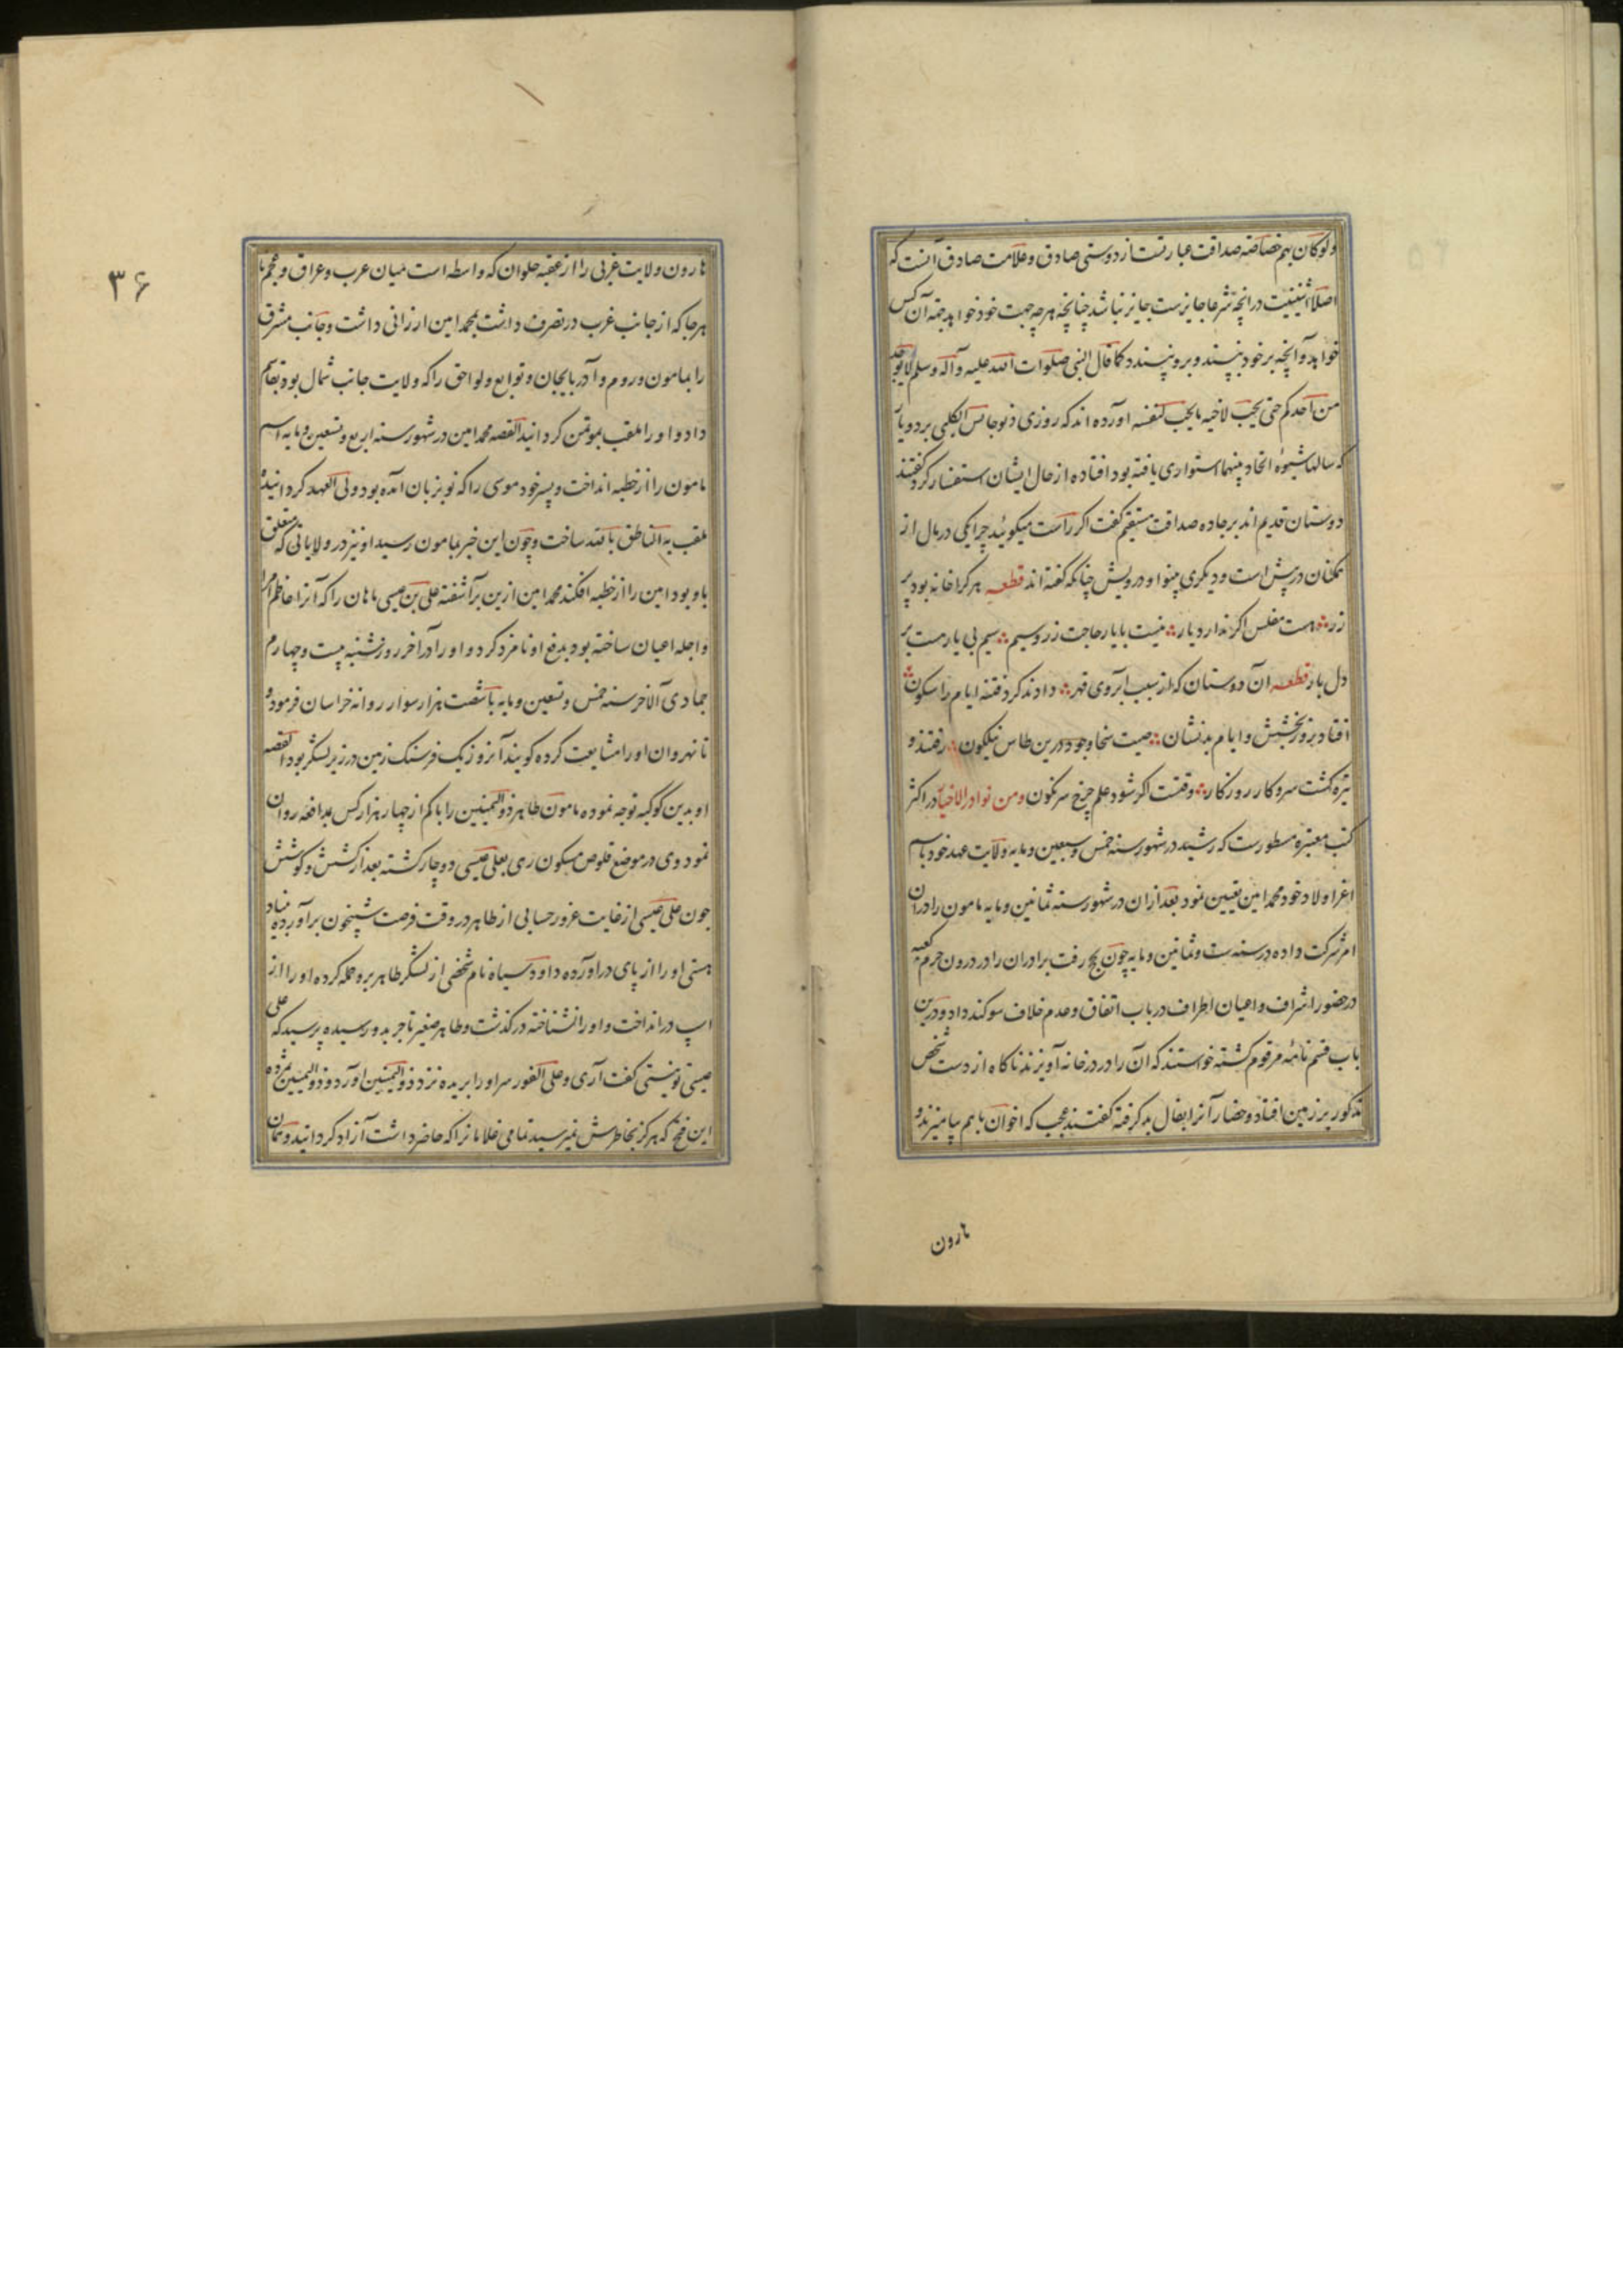 ولوکان بهم خصاصة صداقت عبارتست از دوستی صادق و علامت صادق آنست که
اصلا اثنینیت در انچه شرعا جایزست جایز نباشد چنانچه هرچه جهت خود خواهد جهة آن کس
خواهد و آنچه بر خود نپسند و برو نپسندد کما قال النبی صلوات الله علیه و آله وسلم لا یؤمن
من احدکم حتی یحب لاخیه ما یحب لنفسه اورده اند که روزی ذیوجانس الکلبی بر دو یار
که سالها شیوهٔ اتحاد بینهما استواری یافته بود افتاده از حال ایشان استفسار کرد گفتند
دوستان قدیم اند بر جاده صداقت مستقیم گفت اکر راست میکوئید چرا یکی در مال از
همکنان در پیش است و دیکری بینوا و درویش چنانکه گفته اند قطعه هر کرا خانه بود پر
زر هست مفلس اکر ندارد یار نیست با یار حاجت زر و سیم سیم بی یار هست بر
دل بار قطعه ان دوستان که از سبب ابروی قهر دادند کرد فتنه ایام را سکون
افتاد بروز بخشش و ایام بدنشان صیت سخا وجود درین طاس نیلکون رفتند و
تیره کشت سرو کار روزکار وقتست اکر شود علم چرخ سرنکون ومن نوادر الاخبار در اکثر
کتب معتبره مسطورست که رشید در شهور سنه خمس و سبعین و مایه ولایت عهد خود باسم
اعز اولاد خود محمد امین تعیین نمود بعد ازان در شهور سنه ثمانین و مایه مامون را در ان
امر شرکت داده در سنه ست و ثمانین و مایه چون بحج رفت برادران را در درون حرم کعبه
در حضور اشراف و اعیان اطراف در باب اتفاق و عدم خلاف سوکند داد و درین
باب قسم نامه مرقوم کشته خواستند که آن را در در خانه آویزند ناکاه از دست شخص
مذکور بر زمین افتاد و حضار آنرا بفال بد گرفته گفتند عجب که اخوان با هم بیامیزند و
هارون
۳۶
هارون ولایت غربی را از عقبه حلوان که واسطه است میان عرب و عراق و عجم تا
هرجا که از جانب غرب در تصرف داشت بمحمد امین ارزانی داشت و جانب مشرق
را بمامون و روم و آذربایجان و توابع و لواحق را که ولایت جانب شمال بود بقاسم
داد و او را ملقب بموتمن کردانید القصه محمد امین در شهور سنه اربع و تسعین و مایه اسم
مامون را از خطبه انداخت و پسر خود موسی را که نو بزبان آمده بود ولی العهد کردانید
ملقب به الناطق بالله ساخت و چون این خبر بمامون رسید او نیز در ولایاتی که متعلق
باو بود امین را از خطبه افکند محمد امین ازین برآشفته علی بن عیسی ماهان را که آنرا اعاظم امرا
و اجله اعیان ساخته بود بدفع او نامزد کرد و او را در آخر روز شنبه بیست و چهارم
جمادی الآخر سنه خمس و تسعین و مایه با شصت هزار سوار روانه خراسان فرمود و
تا نهروان او را مشایعت کرده گویند آنروز یک فرسنک زمین در زیر لشکر بود القصه
او بدین کوکبه توجه نموده مامون طاهر ذوالیمینین را با کم از چهار هزار کس بمدافعه روان
نمود وی در موضع قلوص مسکون ری بعلی عیسی دوچار کشته بعد از کشش و کوشش
جون علی عیسی از غایت غرور حسابی از طاهر در وقت فرصت شبیخون برآورده بنیاد
هستی او را از پای دراورده داود سیاه نام شخصی از لشکر طاهر برو حمله کرده او را از
اسپ در انداخت و او را نشناخته در گذشت و طاهر صغیر تاجر بدو رسیده پرسید که علی
عیسی تو نیستی گفت آری و علی الفور سر او را بریده نزد ذوالیمینین آورد و ذوالیمینین بمژده
این فتح که هرکز بخاطرش نمیرسید تمامی غلامانرا که حاضر داشت آزاد کردانید و همان